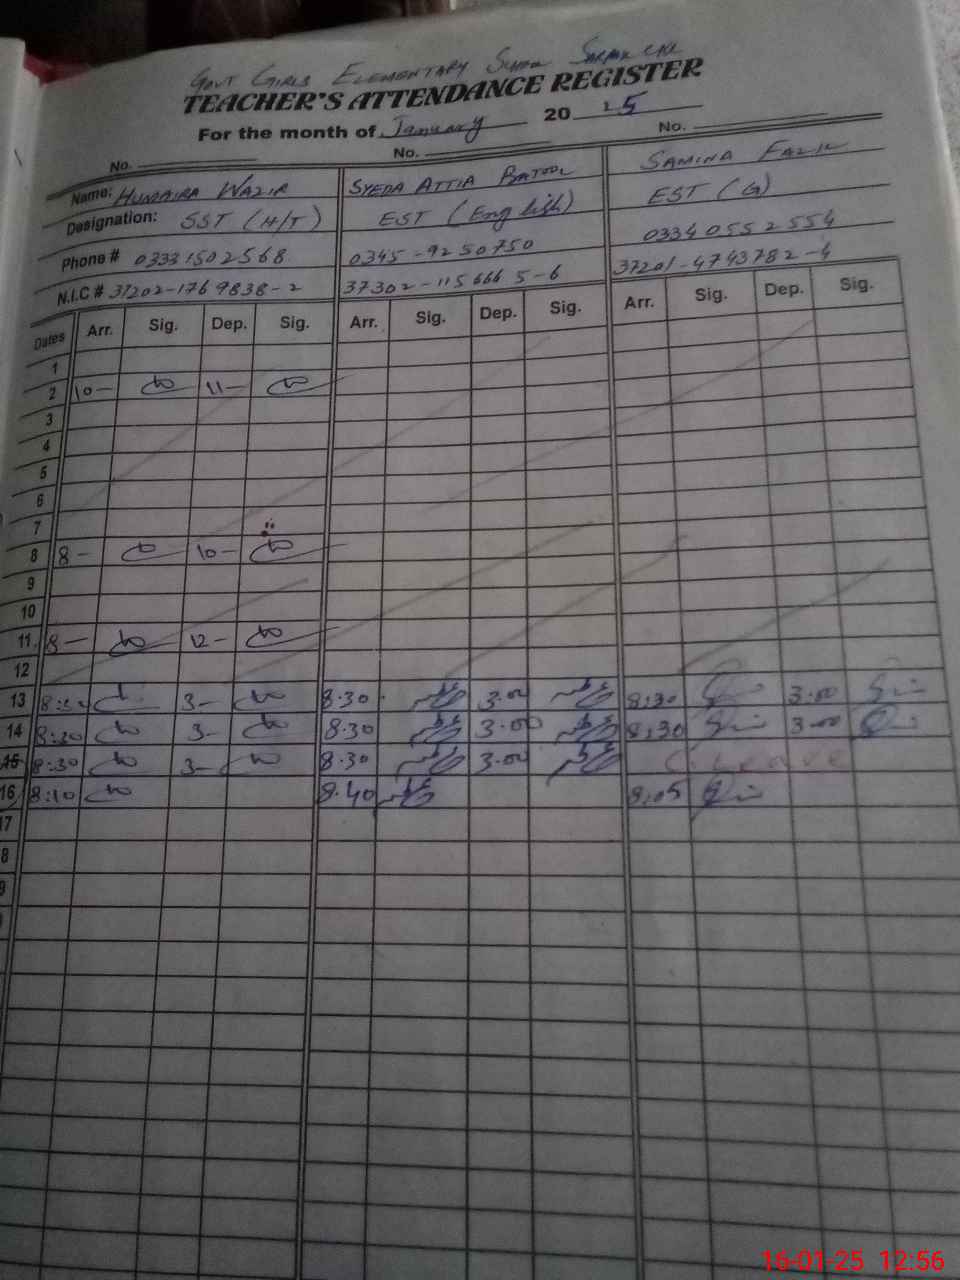 GOVT GIRLS ELEMENTARY SCHOOL
TEACHER'S ATTENDANCE REGISTER
For the month of January 2025
No. No. No.
Name: HUMAIRA WAZIR SYEDA ATTIA BATOOL SAMINA FAZIL
Designation: SST (H/T) EST (English) EST (G)
Phone # 0333 1502568 0345-9250750 0334 0552554
N.I.C # 37202-1769838-2 37302-115666 5-6 37201-4743782-4
Dates Arr. Sig. Dep. Sig. Arr. Sig. Dep. Sig. Arr. Sig. Dep. Sig.
1
2 10- 11-
3
4
5
6
7
8 8- 10-
9
10
11 8- 12-
12
13 8:30 3- 8.30 3.00 8:30 3:00
14 8:30 3- 8.30 3.00 8:30 3:00
15 8:30 3- 8.30 3.00 C. Leave
16 8:10 8.40 8:05
17
8
9
16-01-25 12:56